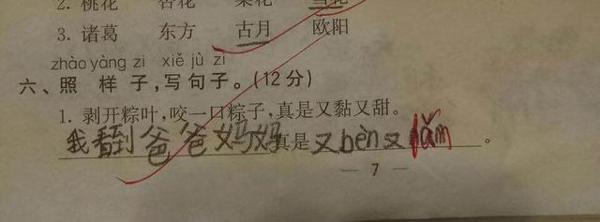 2. 桃花 杏花 梨花 雪花
3. 诸葛 东方 古月 欧阳
zhào yàng zi xiě jù zi
六、照 样 子,写句子。(12分)
1. 剥开粽叶,咬一口粽子,真是又黏又甜。
我看到爸爸妈妈真是又bèn又lǎn。
— 7 —